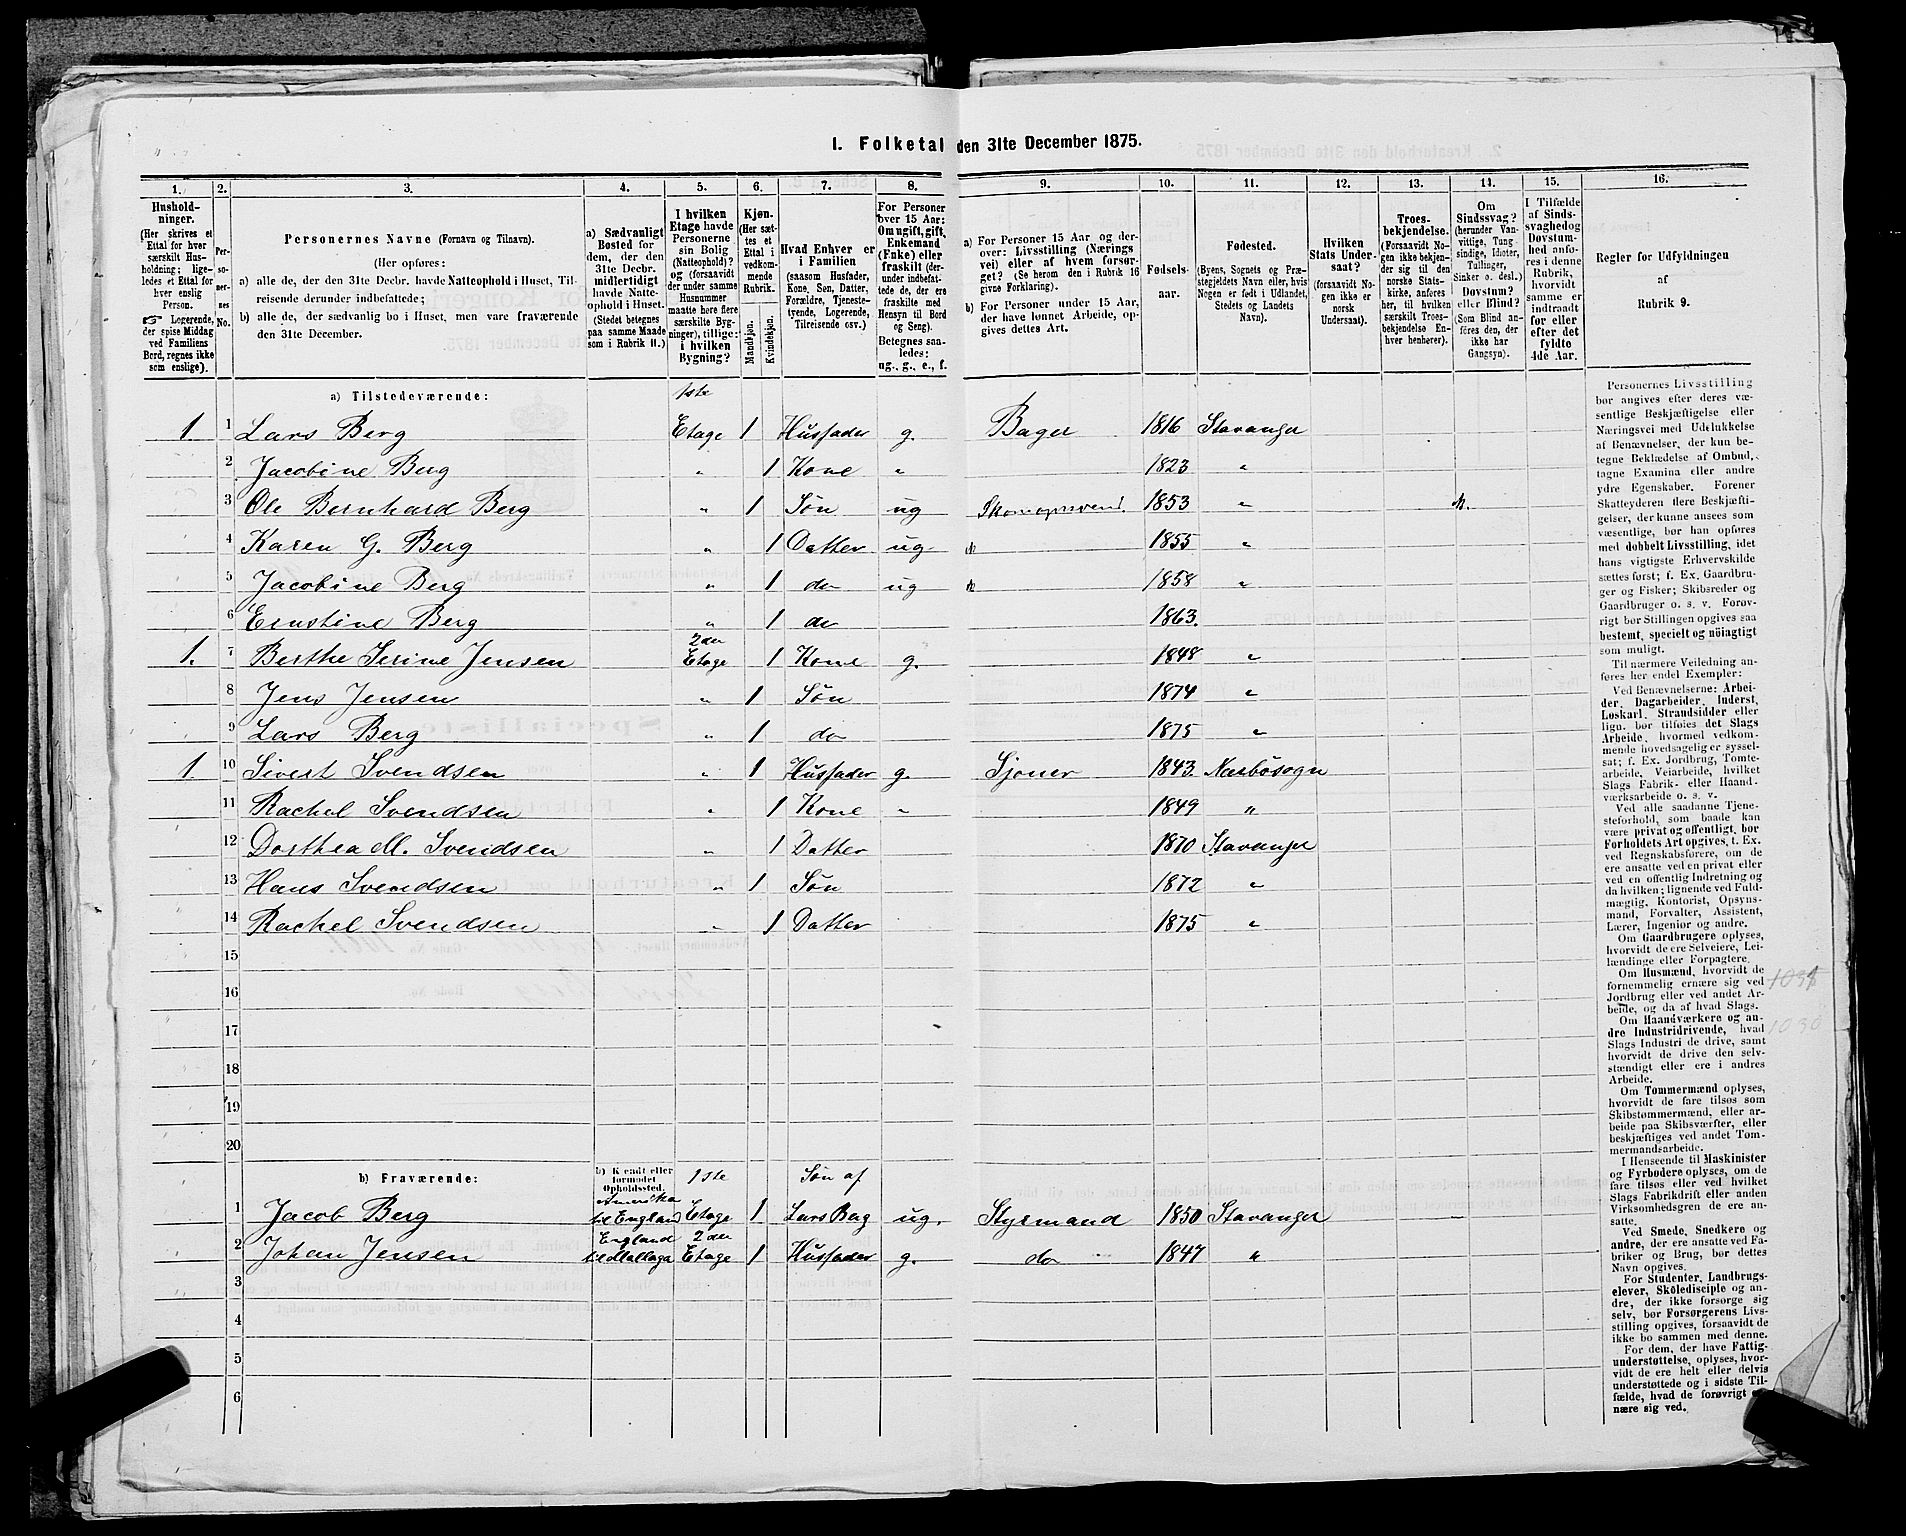 1. Folketal den 31te December 1875.
1. 2. 3. 4. 5. 6. 7. 8. 9. 10. 11. 12. 13. 14. 15. 16.
Hushold-
ninger.
(Her skrives et
Ettal for hver
særskilt Hus-
holdning; lige-
ledes et Ettal for
hver enslig
Person.
☞ Logerende,
der spise Middag
ved Familiens
Bord, regnes ikke
som enslige).
Per-
so-
ner-
nes
No.
Personernes Navne (Fornavn og Tilnavn).
(Her opføres:
a) alle de, der den 31te Decbr. havde Natteophold i Huset, Til-
reisende derunder indbefattede;
b) alle de, der sædvanlig bo i Huset, men vare fraværende
den 31te December.
a) Sædvanligt
Bosted for
dem, der den
31te Decbr.
midlertidigt
havde Natte-
ophold i Huset.
(Stedet betegnes
paa samme Maade
som i Rubrik 11.)
I hvilken
Etage havde
Personerne
sin Bolig
(Natteophold)?
og (forsaavidt
der under samme
Husnummer
maatte høre flere
særskilte Byg-
ninger), tillige:
i hvilken
Bygning?
Kjøn.
(Her sæt-
tes et
Ettal i
vedkom-
mende
Rubrik.
Mandkjøn.
Kvindekjøn.
Hvad Enhver er
i Familien
(saasom Husfader,
Kone, Søn, Datter,
Forældre, Tjeneste-
tyende, Logerende,
Tilreisende osv.)
For Personer
over 15 Aar:
Om ugift, gift,
Enkemand
(Enke) eller
fraskilt (der-
under indbefat-
tede de, der ere
fraskilte med
Hensyn til Bord
og Seng).
Betegnes saa-
ledes:
ug., g., e., f.
a) For Personer 15 Aar og der-
over: Livsstilling (Nærings
vei) eller af hvem forsør-
get? (Se herom den i Rubrik 16
givne Forklaring).
b) For Personer under 15 Aar,
der have lønnet Arbeide, op-
gives dettes Art.
Fødsels-
aar.
Fødested.
(Byens, Sognets og Præ-
stegjeldets Navn eller, hvis
Nogen er født i Udlandet,
Stedets og Landets
Navn).
Hvilken
Stats Under-
saat?
(forsaavidt No-
gen ikke er
norsk
Undersaat).
Troes-
bekjendelse.
(Forsaavidt No-
gen ikke bekjen-
der sig til den
norske Stats-
kirke, anføres
her, til hvilken
særskilt Troes-
bekjendelse En-
hver henhører).
Om
Sindssvag?
(herunder Van-
vittige, Tung-
sindige, Idioter,
Tullinger,
Sinker o. desl.)
Døvstum?
eller Blind?
(Som Blind an-
føres den, der
ikke har
Gangsyn).
I Tilfælde
af Sinds-
svaghed og
Døvstum-
hed anfø-
res i denne
Rubrik,
hvorvidt
samme er
indtraadt
før eller
efter det
fyldte
4de Aar.
Regler for Udfyldningen
af
Rubrik 9.
a) Tilstedeværende:
1ste
1. 1 Lars Berg Etage 1 Husfader g. Bager 1816 Stavanger
2 Jacobine Berg " 1 Kone " 1823 "
3 Ole Bernhard Berg " 1 Søn ug 1853 "
4 Karen G. Berg " 1 Datter ug 1855 "
5 Jacobine Berg " 1 do ug 1858 "
6 Ernstine Berg " 1 do 1863.
2den
1. 7 Berthe Serine Jensen Etage 1 Kone g. 1848 "
8 Jens Jensen " 1 Søn 1874 "
9 Lars Berg " 1 do 1875 "
1 10 Sivert Svendsen " 1 Husfader g. Sjouer 1843. Nærbösogn
11 Rachel Svendsen " 1 Kone " 1849 "
12 Dorthea M. Svendsen " 1 Datter 1870 Stavanger
13 Hans Svendsen " 1 Søn 1872 "
14 Rachel Svendsen " 1 Datter 1875 "
15
16
17
18
19
20
b) Fraværende:
b) Kjendt eller
formodet
Opholdssted.
1ste Søn af
Amerika
1 Jacob Berg til England Etage 1 Lars Berg ug. Styrmand 1850 Stavanger
England 2den
2 Johan Jensen til Mallaga Etage 1 Husfader g. do 1847 "
3
4
5
6
Personernes Livsstilling
bør angives efter deres væ-
sentlige Beskjæftigelse eller
Næringsvei med Udelukkelse
af Benævnelser, der kun be-
tegne Beklædelse af Ombud,
tagne Examina eller andre
ydre Egenskaber. Forener
Skatteyderen flere Beskjæfti-
gelser, der kunne ansees som
væsentlige, bør han opføres
med dobbelt Livsstilling, idet
hans vigtigste Erhvervskilde
sættes først; f. Ex. Gaardbru-
ger og Fisker; Skibsreder og
Gaardbruger o. s. v. Forøv-
rigt bør Stillingen opgives saa
bestemt, specielt og nöiagtigt
som muligt.
Til nærmere Veiledning an-
føres her endel Exempler:
Ved Benævnelserne: Arbei-
der, Dagarbeider, Inderst,
Løskarl, Strandsidder eller
lign. bør tilføies det Slags
Arbeide, hvormed vedkom-
mende hovedsagelig er syssel-
sat; f. Ex. Jordbrug, Tomte-
arbeide, Veiarbeide, hvilket
Slags Fabrik- eller Haand-
værksarbeide o. s. v.
Ved alle saadanne Tjene-
steforhold, som baade kan
være privat og offentligt, bør
Forholdets Art opgives, t. Ex.
ved Regnskabsførere, om de
ere ansatte ved en privat eller
ved en offentlig Indretning og
da hvilken; lignende ved Fuld-
mægtig, Kontorist, Opsyns-
mand, Forvalter, Assistent,
Lærer, Ingeniør og andre.
Om Gaardbrugere oplyses,
hvorvidt de ere Selveiere, Lei-
lændinge eller Forpagtere.
Om Husmænd, hvorvidt de
fornemmelig ernære sig ved
Jordbrug eller ved andet Ar-
beide, og da af hvad Slags.
Om Haandværkere og an-
dre Industridrivende, hvad
Slags Industri de drive, samt
hvorvidt de drive den selv-
stændigt eller ere i andres
Arbeide.
Om Tømmermænd oplyses,
hvorvidt de fare tilsøs som
Skibstømmermænd, eller ar-
beide paa Skibsværfter, eller
beskjæftiges ved andet Tøm-
mermandsarbeide.
I Henseende til Maskinister
og Fyrbødere oplyses, om de
fare tilsøs eller ved hvilket
Slags Fabrikdrift eller anden
Virksomhedsgren de ere an-
satte.
Ved Smede, Snedkere og
andre, der ere ansatte ved Fa-
briker og Brug, bør dettes
Navn opgives.
For Studenter, Landbrugs-
elever, Skoledisciple og an-
dre, der ikke forsørge sig
selv, bør Forsørgerens Livs-
stilling opgives, forsaavidt de
ikke bo sammen med denne.
For dem, der have Fattig-
understøttelse, oplyses, hvor-
vidt de ere helt eller delvis
understøttede og i sidste Til-
fælde, hvad de forøvrigt er-
nære sig ved.
1030